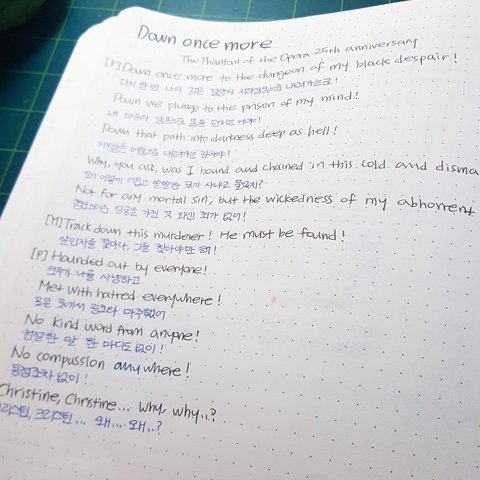 Down once more
The Phantom of the Opera 25th anniversary
[P] Down once more to the dungeon of my black despair!
다시 한 번 나의 검은 절망의 지하감옥으로 내려가는구!
Down we plunge to the prison of my mind!
내 마음의 감옥으로 몸을 던지는거야!
Down that path into darkness deep as hell!
지옥같은 어둠으로 내려가는 길이야!
Why, you ask, was I bound and chained in this cold and disma
왜 이렇게 어둡고 쌀쌀한 곳에 사냐고 물었지?
Not for any mortal sin, but the wickedness of my abhorrent
얼굴을 가진 것 외엔 죄가 없어!
[M] Track down this murderer! He must be found!
살인자를 쫓아라, 그를 찾아야만 해!
[P] Hounded out by everyone!
모두가 나를 사냥하고
Met with hatred everywhere!
모든 곳에서 증오와 마주했어
No kind word from anyone!
친절한 말 한 마디도 없이!
No compassion anywhere!
동정조차 없이!
Christine, Christine... Why, why..?
크리스틴, 크리스틴... 왜... 왜..?